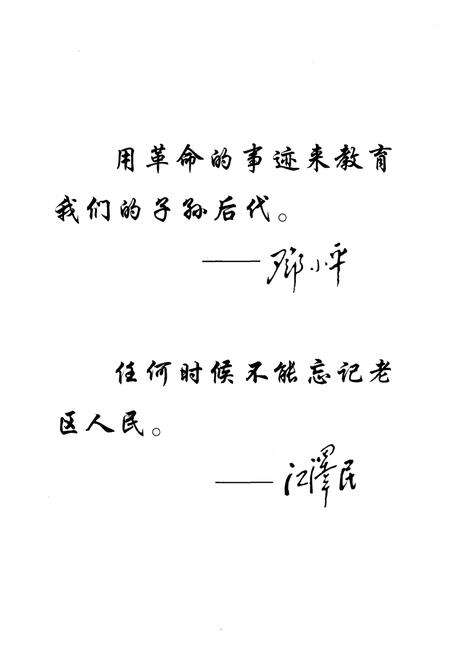 用革命的事迹来教育
我们的子孙后代。
——邓小平
任何时候不能忘记老
区人民。
——江澤民